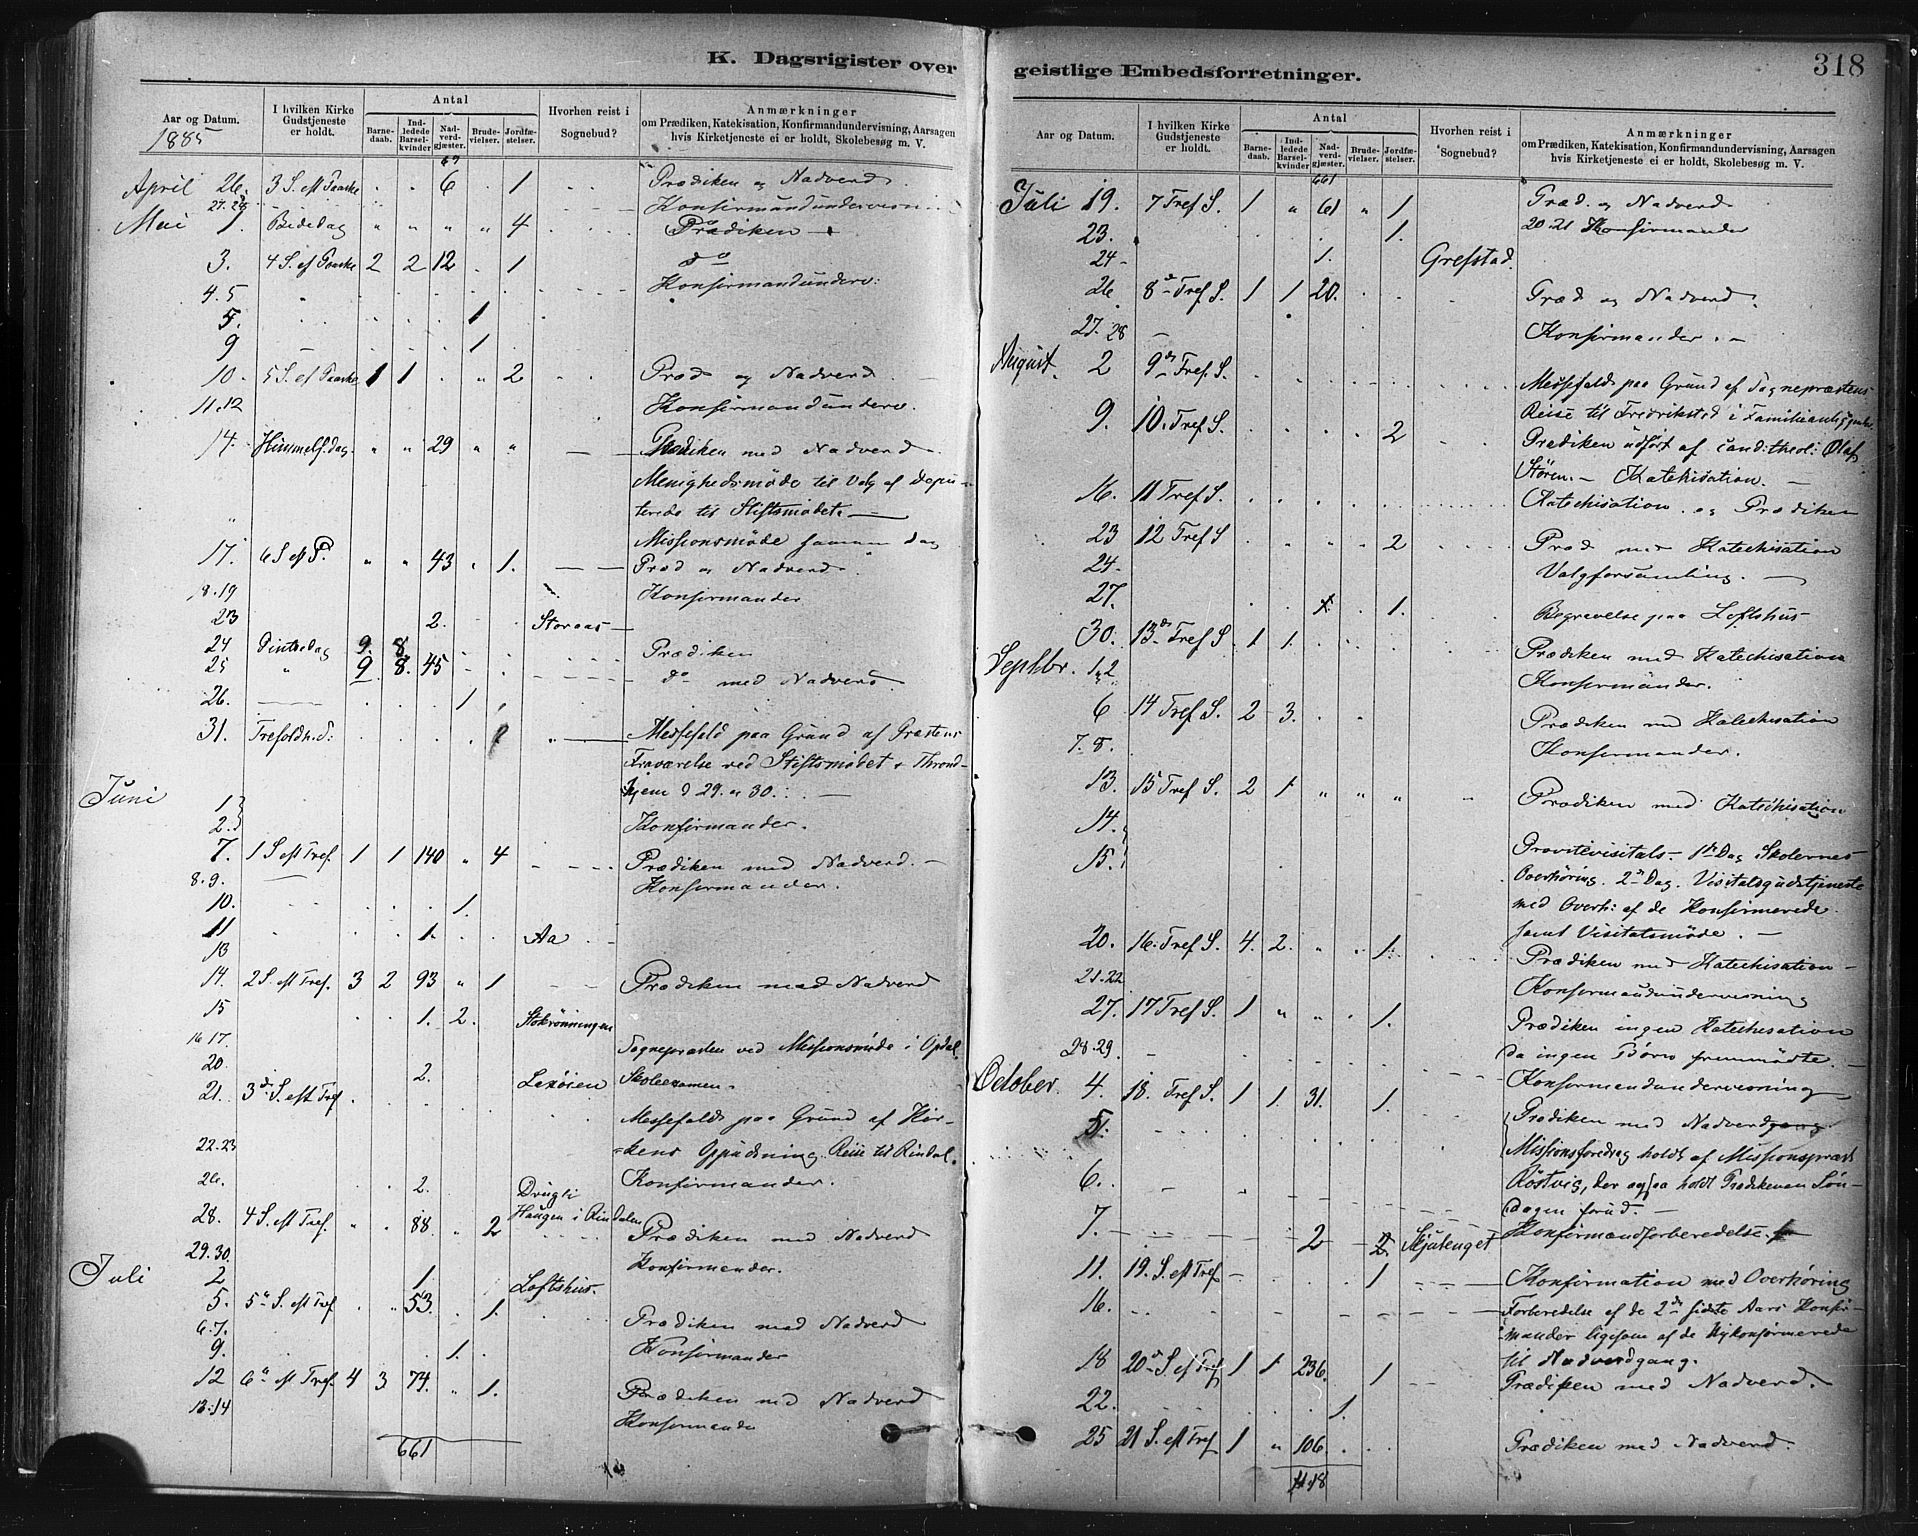 K. Dagsrigister over
Antal
I hvilken Kirke Gudstjeneste er holdt.
Hvorhen reist i Sognebud?
Anmærkninger
om Prædiken, Katekisation, Konfirmandundervisning, Aarsagen hvis Kirketjeneste ei er holdt, Skolebesøg m. V.
Aar og Datum.
Barnedaab.
Indledede Barselkvinder
Nadverdgjæster.
Brudevielser.
Jordfæstelser.
1885
April 26. 3 S. eft Paaske . . 6 . 1 Prædiken og Nadverd.
27. 28 Konfirmandundervisni
Mai 1. Bededag " " " " 4 Prædiken
3. 4 S. ef Paaske 2 2 12 . 1 do
4. 5 Konfirmandunderv:
5. 1
9 1
10. 5 S. ef Paaske 1 1 . " 2 Præd og Nadverd.
11. 12 Konfirmandunderv.
14. Himmelf. dag " " 29 " " Prædiken med Nadverd.
Menighedsmøde til Valg af Depu
terede til Stiftsmødet.
Missionsmøde samme Dag
17. 6 S. eft P. " " 43 . 1. Præd og Nadverd
18. 19 Konfirmander
23 2. Storaas
24 Pintsedag 9. 8. Prædiken
25 " 9 8. 45 do med Nadverd.
26. 1
31. Trefoldh. d: Messefald paa Grund af Præstens
Fraværelse ved Stiftsmødet i Thrond-
hjem d 29. o 30.
Juni 1.
2. Konfirmander.
7. 1 S. eft Tref. 1 1 140 " 4 Prædiken med Nadverd.
8. 9. Konfirmander.
10. 1.
11 1. Aa
13
14. 2 S. eft Tref. 3 2 93 " 1 Prædiken med Nadverd
15 1. 2. Stokrönningen
16 17. Sognepræsten ved Missionsmøde i Opdal.
20. 2. Lexøien Skoleexamen.
21. 3d S. eft Tref Messefald paa Grund af Kir-
kens Oppudsning. Reise til Rindal.
22. 23 Konfirmander.
26. 2. Drugli
Haugen i Rindalen
28. 4 S. eft Tref. " . 88. " 2 Prædiken med Nadverd
29. 30. Konfirmander.
Juli 2 1. Loftshus.
5. 5te S. eft Tref . " 53. . 1. Prædiken med Nadverd
6. 7. Konfirmander
9. 1.
12 6te eft Tref. 4 3 74. " 1. Prædiken med Nadverd
13. 14 Konfirmande
661
geistlige Embedsforretninger.
318
Antal
Aar og Datum.
I hvilken Kirke Gudstjeneste er holdt.
Barnedaab.
Indledede Barselkvinder
Nadverdgjæster.
Brudevielser.
Jordfæstelser.
Hvorhen reist i Sognebud?
Anmærkninger
om Prædiken, Katekisation, Konfirmandundervisning, Aarsagen hvis Kirketjeneste ei er holdt, Skolebesøg m. V.
661
Juli 19. 7 Tref S. 1 " 61 " 1 Præd. og Nadverd
20-21 Konfirmander
23. 1.
24 1. Grefstad.
26 8de Tref S. 1 1 20. Præd og Nadverd.
27. 28 Konfirmander.
August 2 9de Tref. S. Messefald paa Grund af Sognepræstens
Reise til Fredrikstad i Familieanliggender.
9. 10. Tref S. 2 Prædiken udført af cand: theol: Olaf
Stören. - Katekisation.
16. 11 Tref S. Katechisation og Prædiken
23 12 Tref S " " 2 Præd med Katechisation
24. Valgforsamling.
27. 1. Begravelse paa Loftshus
30. 13de Tref S. 1 1. Prædiken med Katechisation
Septbr. 1.2 Konfirmander.
6 14 Tref S. 2 3. Prædiken med Katechisation
7. 8. Konfirmander.
13. 15 Tref S. 2 1 " " " " Prædiken med Katechisation
14.
15. Provstevisitats. 1ste Dag Skolernes
Overhøring. 2den Dag. Visitatsgudstjeneste
med Overh: af de Konfirmerede
samt Visitatsmøde.
20. 16. Tref S. 4. 2. " " 1. Prædiken med Katechisation
21. 22 Konfirmandundervisning
27. 17 Tref S. 1 " " . 1. Prædiken ingen Katechisation
28. 29. da ingen Børn fremmødte.
Konfirmandundervisning
October. 4. 18. Tref S. 1 1. 31. 1. Prædiken med Nadverdgang
5. Missionsforedrag holdt af Missionspræst
6. Röstvig, der ogsaa holdt Prædikenen Søn-
dagen forud.
7. 2 2. Skjutenget Konfirmandforberedelse.
11. 19. S. eft Tref 1 Konfirmation med Overhøring
16. Forberedelse af de 2de sidste Aars Konfir-
mander ligesom af de Nykonfirmerede
til Nadverdgang.
18 20de S. ef Tref 1 1 236. 1 Prædiken med Nadverd.
22. 1.
25 21 S. eft Tref 1 " 106. Prædiken med Nadverd.
1118